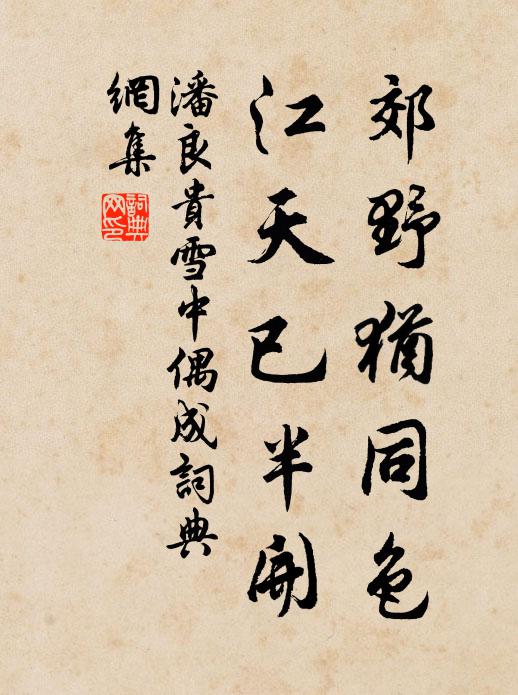 郊野猶同色
江天已半開
潘良貴雪中偶成詞典
網集
詞典网印